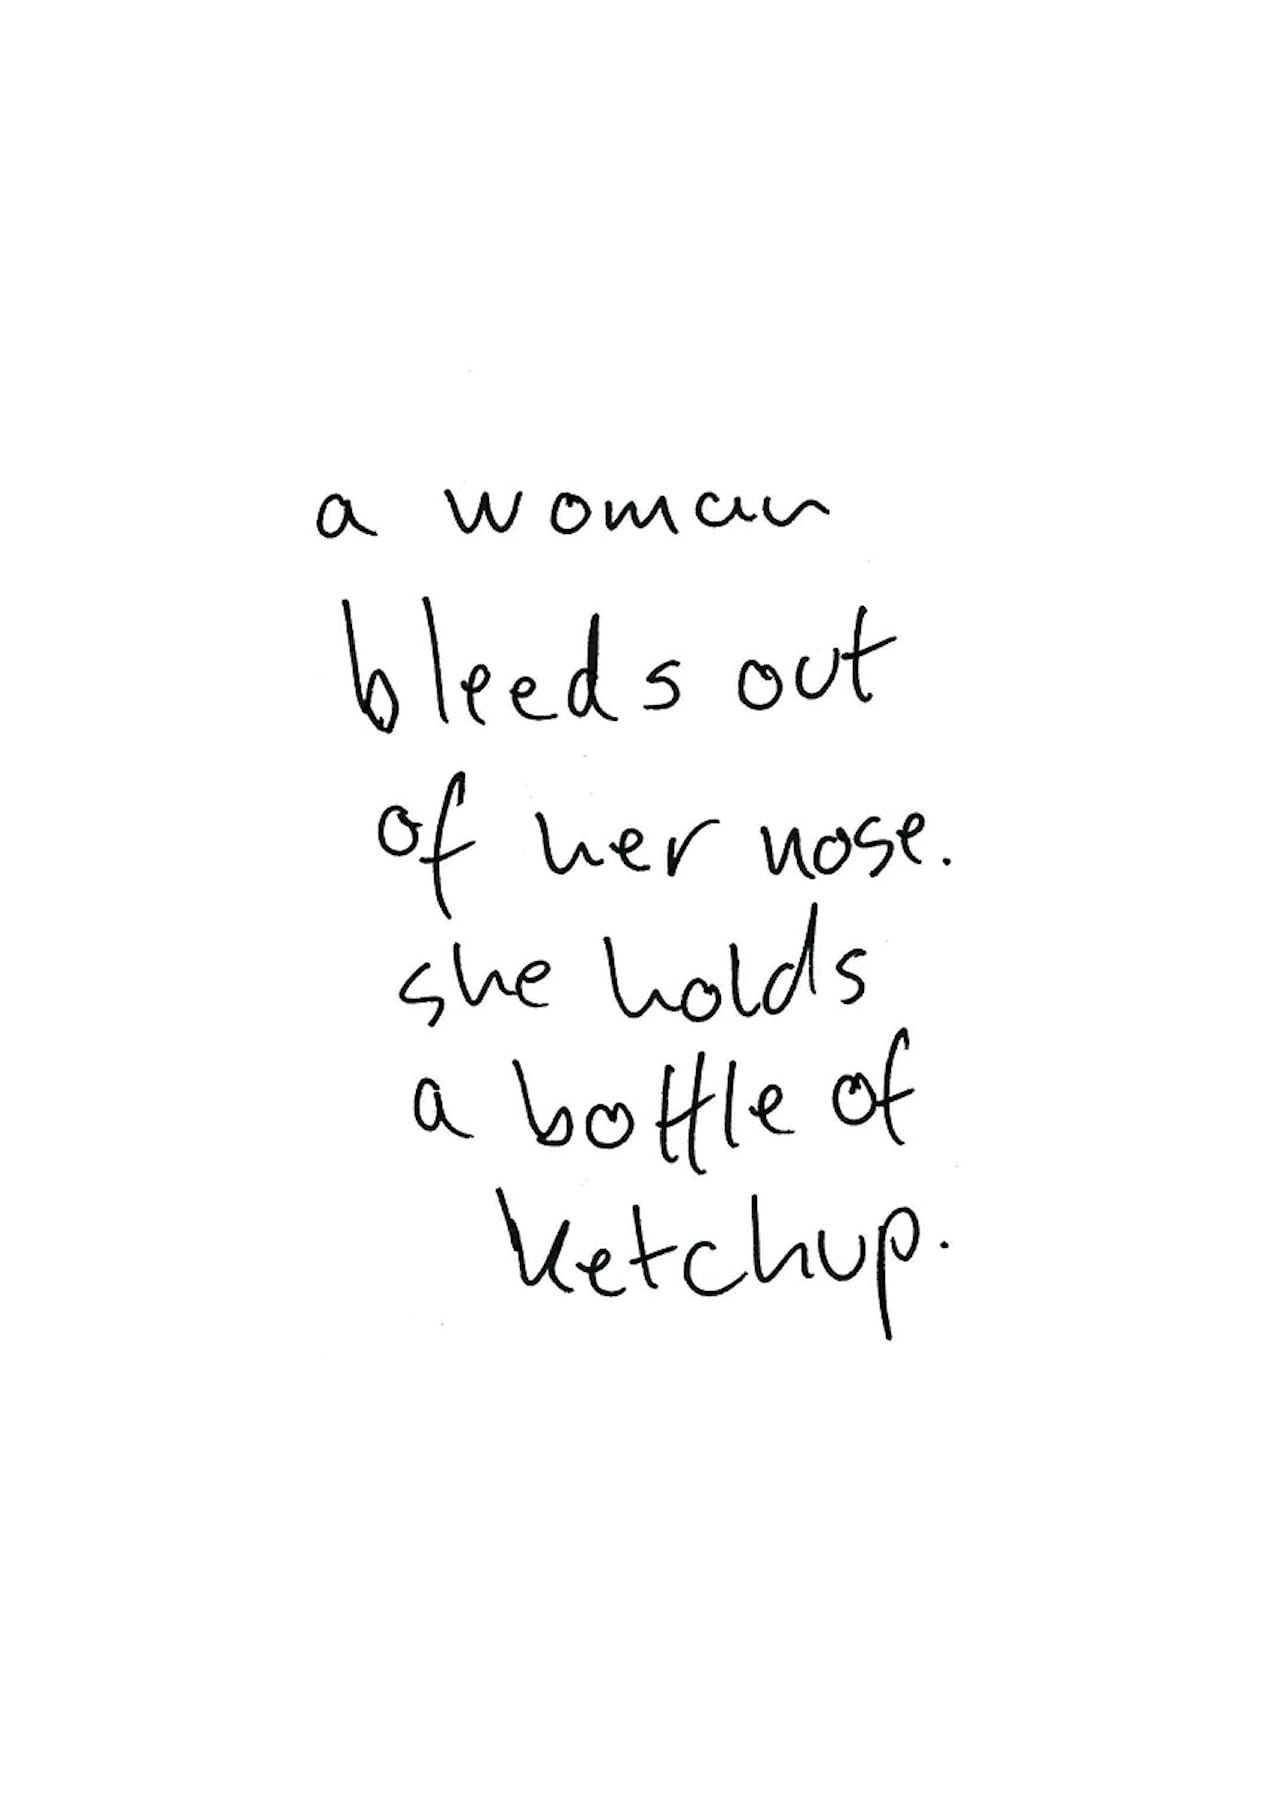 a woman
bleeds out
of her nose.
she holds
a bottle of
ketchup.